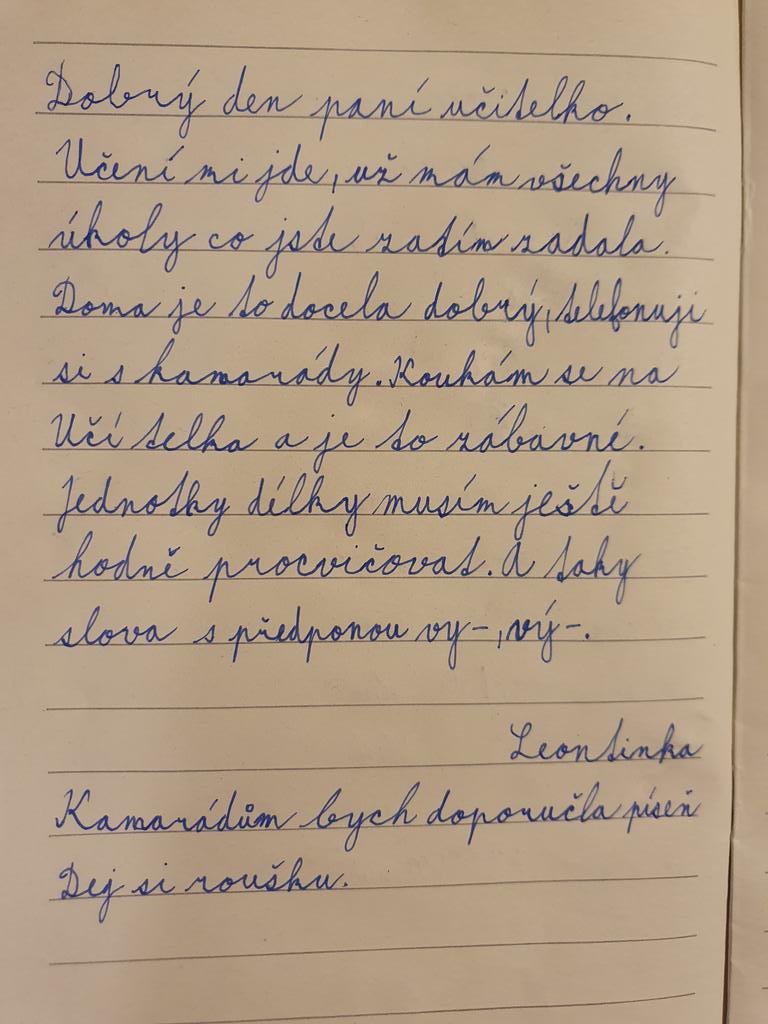 Dobrý den paní učitelko.
Učení mi jde, už mám všechny
úkoly co jste zatím zadala.
Doma je to docela dobrý, telefonuji
si s kamarády. Koukám se na
Učí telka a je to zábavné.
Jednotky délky musím ještě
hodně procvičovat. A taky
slova s předponou vy-, vý-.
Leontinka
Kamarádům bych doporučla píseň
Dej si roušku.